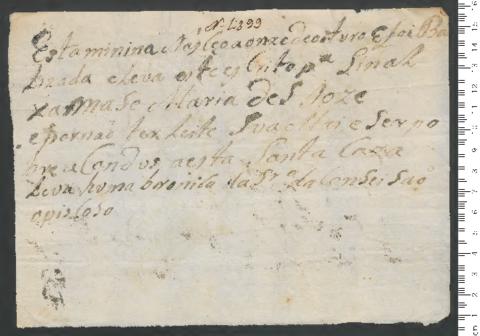 N. 1899
Esta minina Nasceo a onze de outubro E foi Ba
tizada e leva este escrito pª Sinal
xamase Maria de S. Joze
e por naõ ter Leite Sua Mai e Ser po
bre a Conduz a esta Santa Caza
Leva huma boronica da Srª da Conseisaõ
ao piscoso